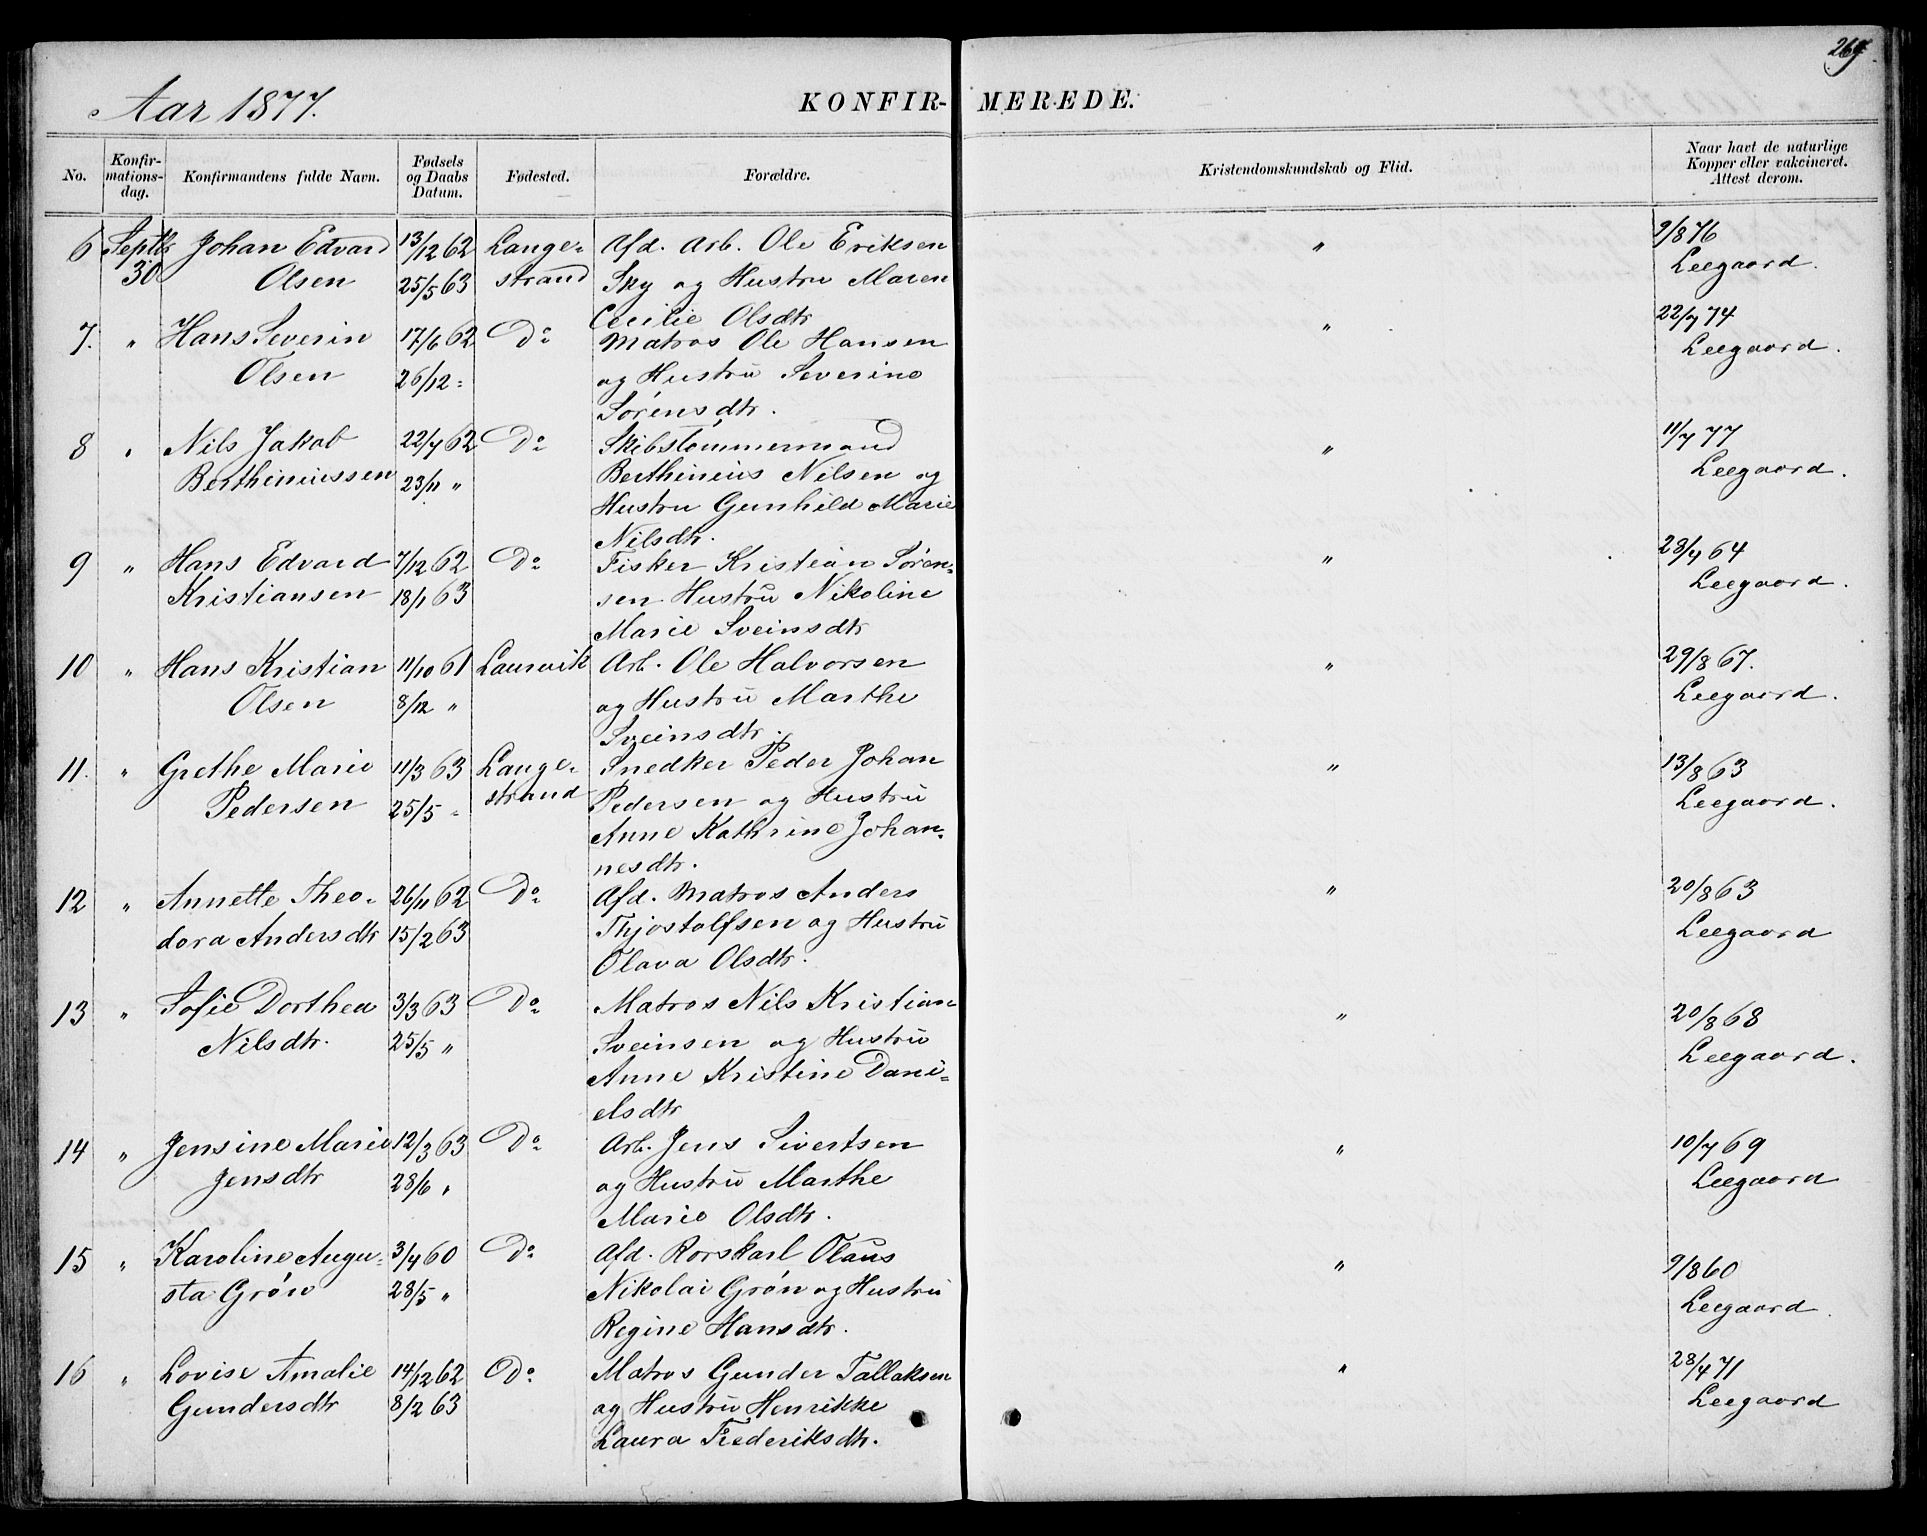 269.
Aar 1877. KONFIR- MEREDE.
No. Konfir-mations-dag. Konfirmandens fulde Navn. Fødsels og Daabs Datum. Fødested. Forældre. Kristendomskundskab og Flid. Naar havt de naturlige Kopper eller vakcineret. Attest derom.
6 Septbr Johan Edvard 13/12 62 Lange- Afd. Arb. Ole Eriksen " 9/8 76
30 Olsen 25/5 63 strand Sky og Hustru Maren Leegaard.
Cecilie Olsdtr
7. " Hans Severin 17/6 62 Do Matros Ole Hansen " 22/7 74
Olsen 26/12 = og Hustru Severine Leegaard.
Sørensdtr.
8 " Nils Jakob 22/7 62 Do Skibstømmermand " 11/7 77
Berthiniussen 23/11 " Berthinius Nilsen og Leegaard.
Hustru Gunhild Marie
Nilsdtr.
9 " Hans Edvard 7/12 62 Do Fisker Kristian Søren- " 28/7 64
Kristiansen 18/1 63 sen Hustru Nikoline Leegaard.
Marie Sveinsdtr
10 " Hans Kristian 11/10 61 Laurvik Arb. Ole Halvorsen " 29/8 67.
Olsen 8/12 " og Hustru Marthe Leegaard.
Sveinsdtr.
11. " Grethe Marie 11/3 63 Lange- Snedker Peder Johan " 13/8 63
Pedersen 25/5 - strand Pedersen og Hustru Leegaard.
Anne Kathrine Johan-
nesdtr.
12 " Annette Theo- 26/11 62 Do Afd. Matros Anders " 20/8 63
dora Andersdtr 15/2 63 Thjostolfsen og Hustru Leegaard
Olava Olsdtr.
13 " Sofie Dorthea 3/3 63 Do Matros Nils Kristian " 20/8 68
Nilsdtr. 25/5 " Sveinsen og Hustru Leegaard.
Anne Kristine Dani-
elsdtr
14 " Jensine Marie 12/3 63 Do Arb. Jens Sivertsen " 10/7 69
Jensdtr 28/6 " og Hustru Marthe Leegaard
Marie Olsdtr.
15 " Karoline Augu- 3/4 60 Do Afd. Rorskarl Olaus " 9/8 60
sta Grøn 28/5 " Nikolai Grøn og Hustru Leegaard.
Regine Hansdtr.
16 " Lovise Amalie 14/12 62 Do Matros Gunder Tallaksen " 28/4 71
Gundersdtr 8/2 63 og Hustru Henrikke Leegaard
Laura Frederiksdtr.